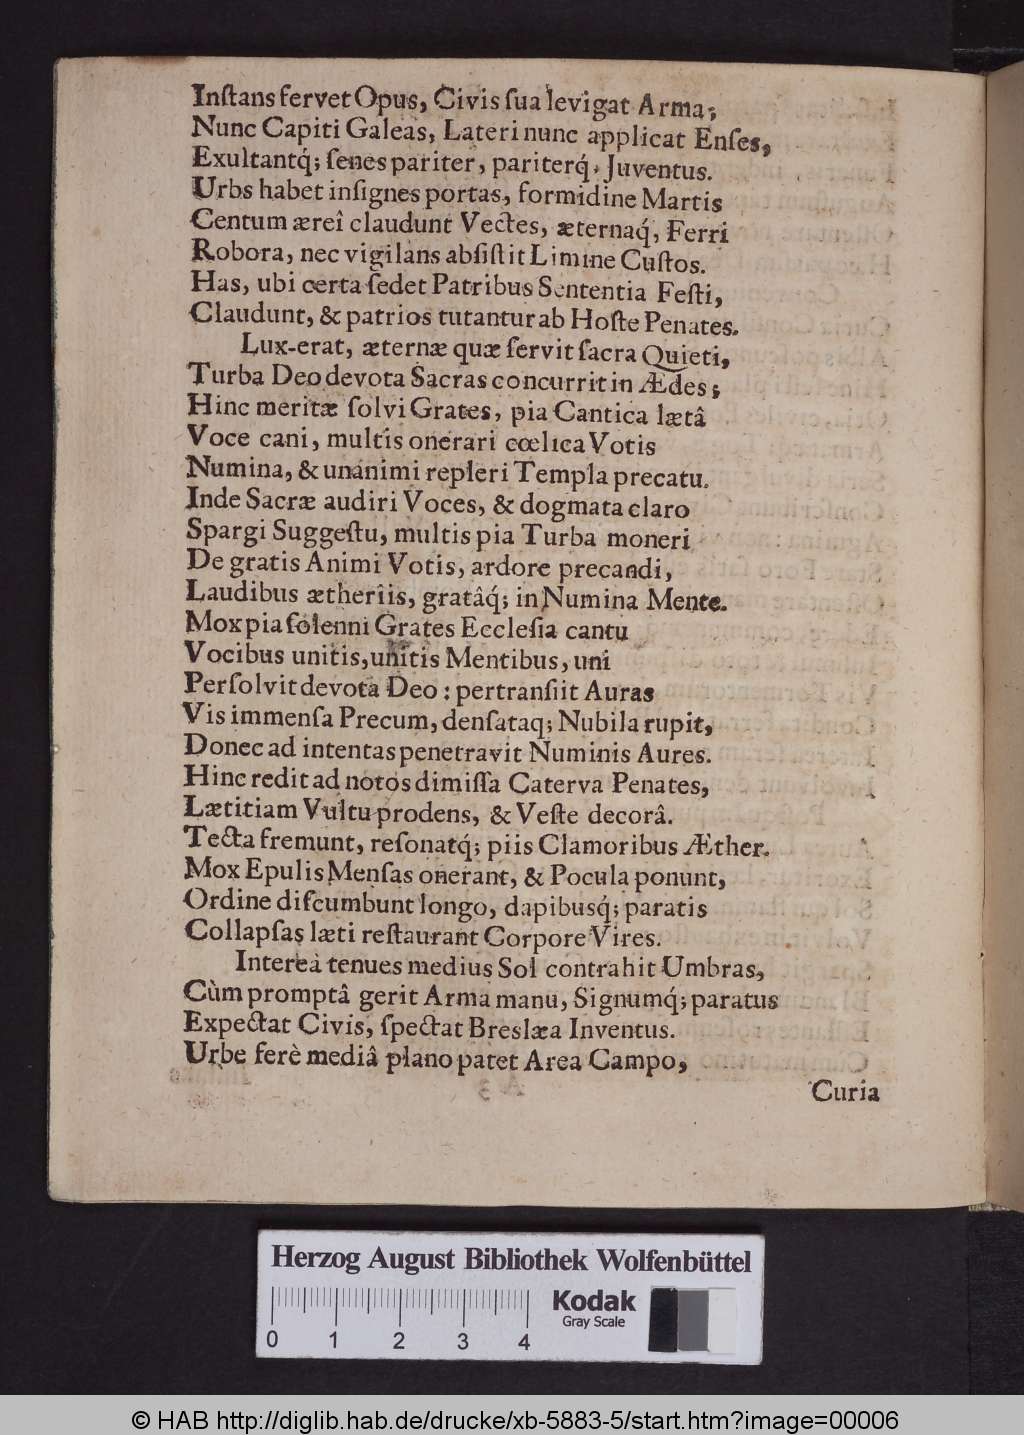 Inſtans fervet Opus, Civis ſua levigat Arma;
Nunc Capiti Galeas, Lateri nunc applicat Enſes,
Exultantq́; ſenes pariter, pariterq́, Juventus.
Urbs habet inſignes portas, formidine Martis
Centum æreî claudunt Vectes, æternaq́, Ferri
Robora, nec vigilans abſiſtit Limine Cuſtos.
Has, ubi certa ſedet Patribus Sententia Feſti,
Claudunt, & patrios tutantur ab Hoſte Penates.
Lux erat, æternæ quæ ſervit ſacra Quieti,
Turba Deo devota Sacras concurrit in Ædes;
Hinc meritæ ſolvi Grates, pia Cantica lætâ
Voce cani, multis onerari cœlica Votis
Numina, & unanimi repleri Templa precatu.
Inde Sacræ audiri Voces, & dogmata claro
Spargi Suggeſtu, multis pia Turba moneri
De gratis Animi Votis, ardore precandi,
Laudibus ætheriis, gratâq́; in Numina Mente.
Mox pia ſolenni Grates Eccleſia cantu
Vocibus unitis, unitis Mentibus, uni
Perſolvit devota Deo: pertranſiit Auras
Vis immenſa Precum, denſataq; Nubila rupit,
Donec ad intentas penetravit Numinis Aures.
Hinc redit ad notos dimiſſa Caterva Penates,
Lætitiam Vultu prodens, & Veſte decorâ.
Tecta fremunt, reſonatq́; piis Clamoribus Æther.
Mox Epulis Menſas onerant, & Pocula ponunt,
Ordine diſcumbunt longo, dapibusq́; paratis
Collapſas læti reſtaurant Corpore Vires.
Interea tenues medius Sol contrahit Umbras,
Cùm promptâ gerit Arma manu, Signumq́; paratus
Expectat Civis, ſpectat Breslæa Inventus.
Urbe ferè mediâ plano patet Area Campo,
Curia
Herzog August Bibliothek Wolfenbüttel
Kodak
Gray Scale
0 1 2 3 4
© HAB http://diglib.hab.de/drucke/xb-5883-5/start.htm?image=00006